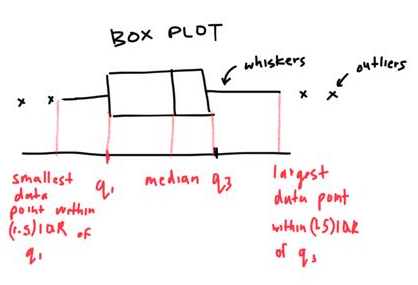 BOX PLOT
whiskers
outliers
x x
x x
smallest
data
point within
(1.5) IQR of
q1
q1
median
q3
largest
data point
within (1.5) IQR
of q3